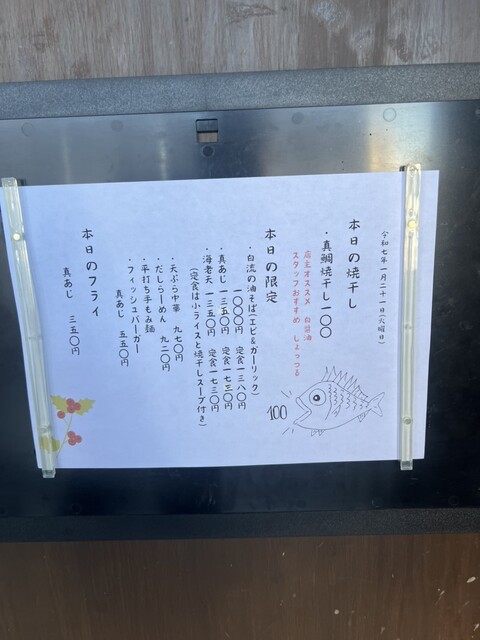 令和七年一月二十一日(火曜日)
本日の焼干し
・真鯛焼干し一〇〇
店主オススメ 白醤油
スタッフおすすめ しょっつる
100
本日の限定
・白流の油そば(エビ&ガーリック)
一〇〇〇円 定食一三八〇円
・真あじ 一三五〇円 定食一七三〇円
・海老天 一三五〇円 定食一七三〇円
(定食は小ライスと焼干しスープ付き)
・天ぷら中華 九七〇円
・だしらーめん 九二〇円
・平打ち手もみ麺
・フィッシュバーガー
真あじ 五五〇円
本日のフライ
真あじ 三五〇円